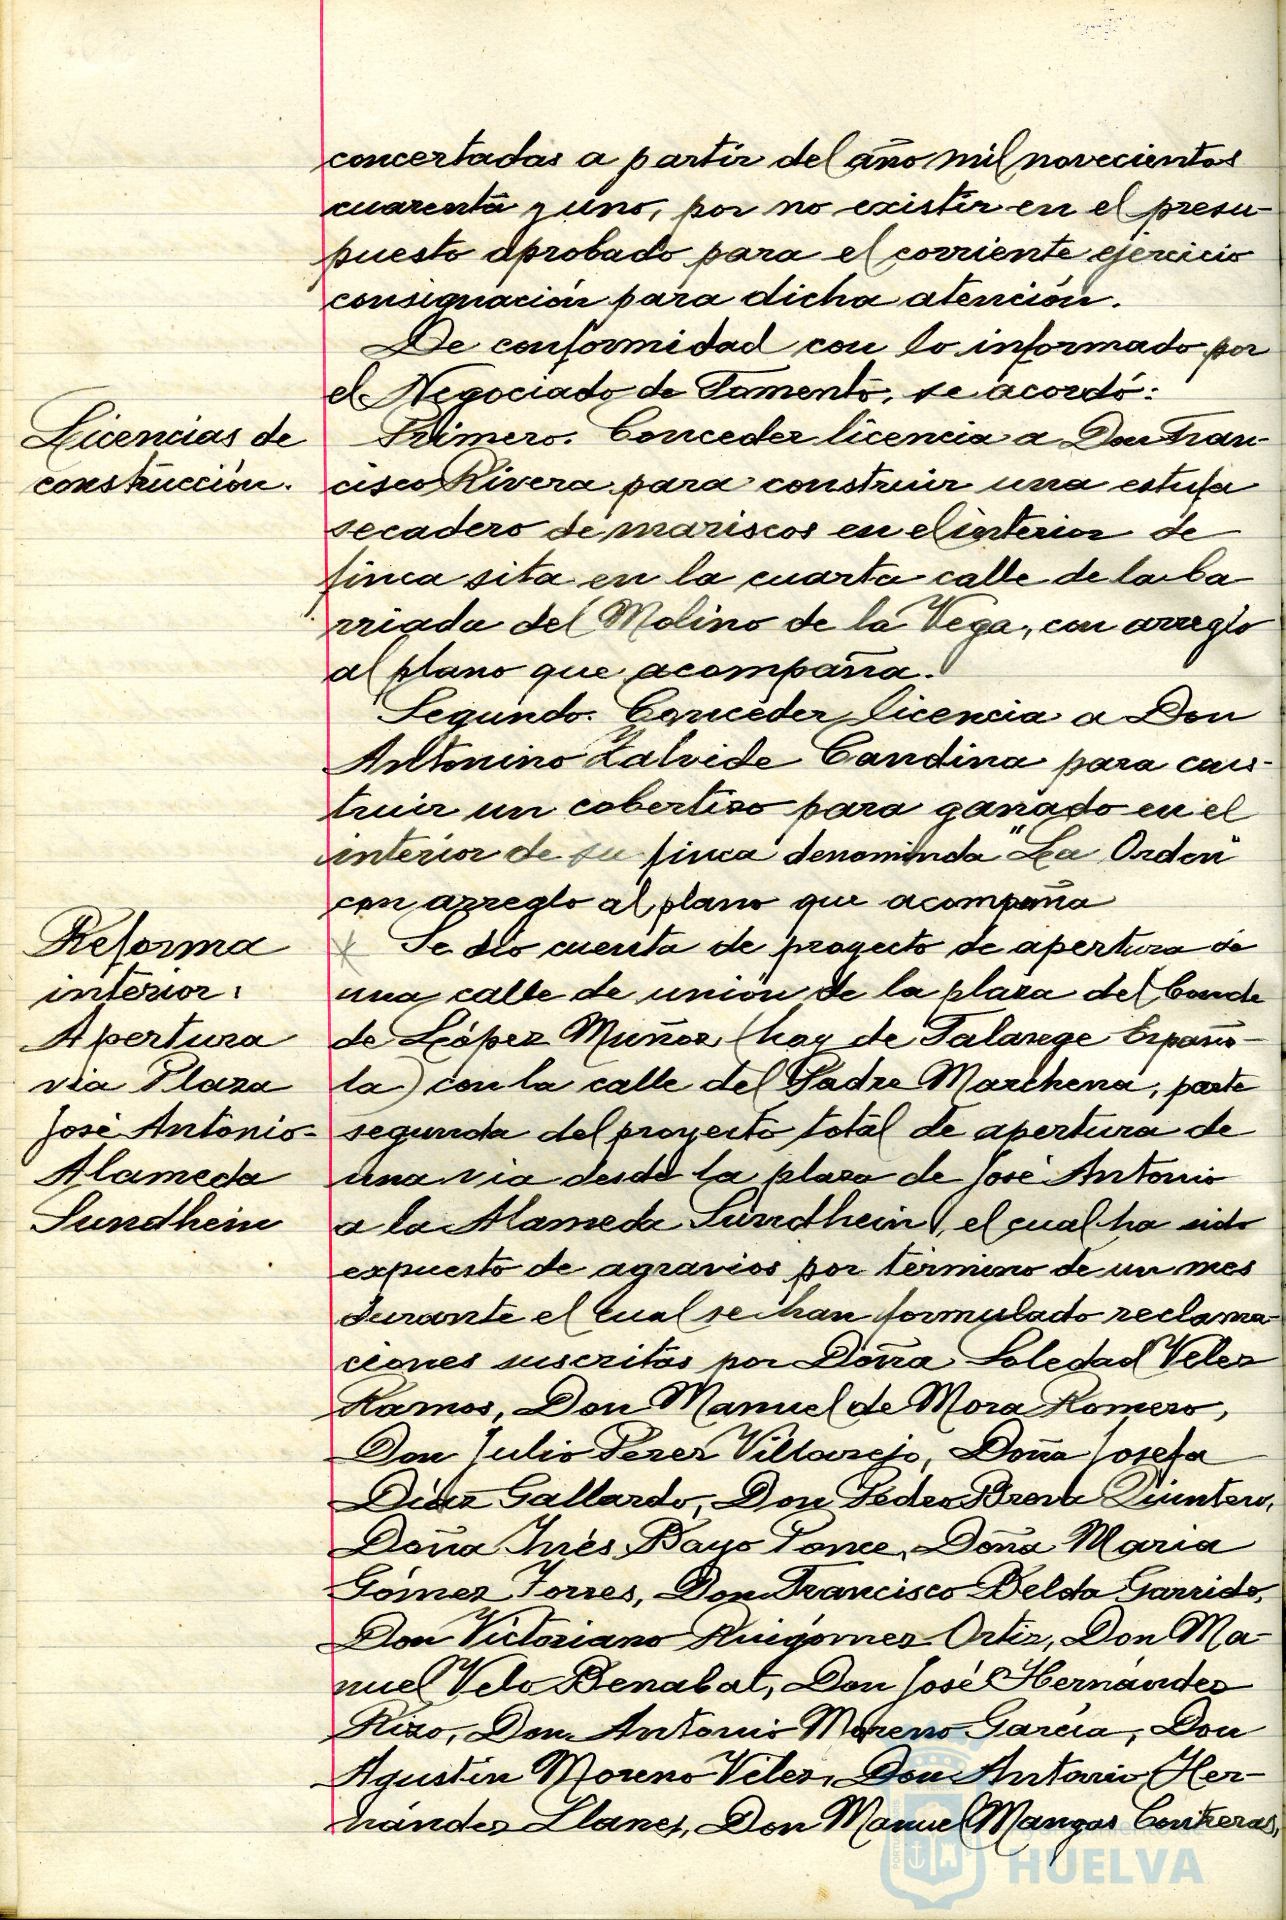 concertadas a partir del año mil novecientos
cuarenta y uno, por no existir en el presu-
puesto aprobado para el corriente ejercicio
consignación para dicha atención.
De conformidad con lo informado por
el Negociado de Fomento, se acordó:
Licencias de
construcción.
Primero. Conceder licencia a Don Fran-
cisco Rivera para construir una estufa
secadero de mariscos en el interior de
finca sita en la cuarta calle de la ba
rriada del Molino de la Vega, con arreglo
al plano que acompaña.
Segundo. Conceder licencia a Don
Antonino Zalvide Candina para cons-
truir un cobertizo para ganado en el
interior de su finca denominda "La Orden"
con arreglo al plano que acompaña
Reforma
interior:
Apertura
via Plaza
José Antonio-
Alameda
Sundhein
Se dio cuenta de proyecto de apertura de
una calle de unión de la plaza del Conde
de López Muñoz (hoy de Falange Españo-
la) con la calle del Padre Marchena, parte
segunda del proyecto total de apertura de
una via desde la plaza de José Antonio
a la Alameda Sundhein, el cual ha sido
expuesto de agravios por término de un mes
durante el cual se han formulado reclama-
ciones suscritas por Doña Soledad Velez
Ramos, Don Manuel de Mora Romero,
Don Julio Perez Villarejo, Doña Josefa
Díaz Gallardo, Don Pedro Quintero,
Doña Inés Bayo Ponce, Doña Maria
Gómez Torres, Don Francisco Belda Garrido,
Don Victoriano Ruigómez Ortiz, Don Ma-
nuel Velo Benabat, Don José Hernández
Rizo, Don Antonio Moreno García, Don
Agustín Moreno Velez, Don Antonio Her-
nández Llanes, Don Manuel Mangas Contreras,
HUELVA